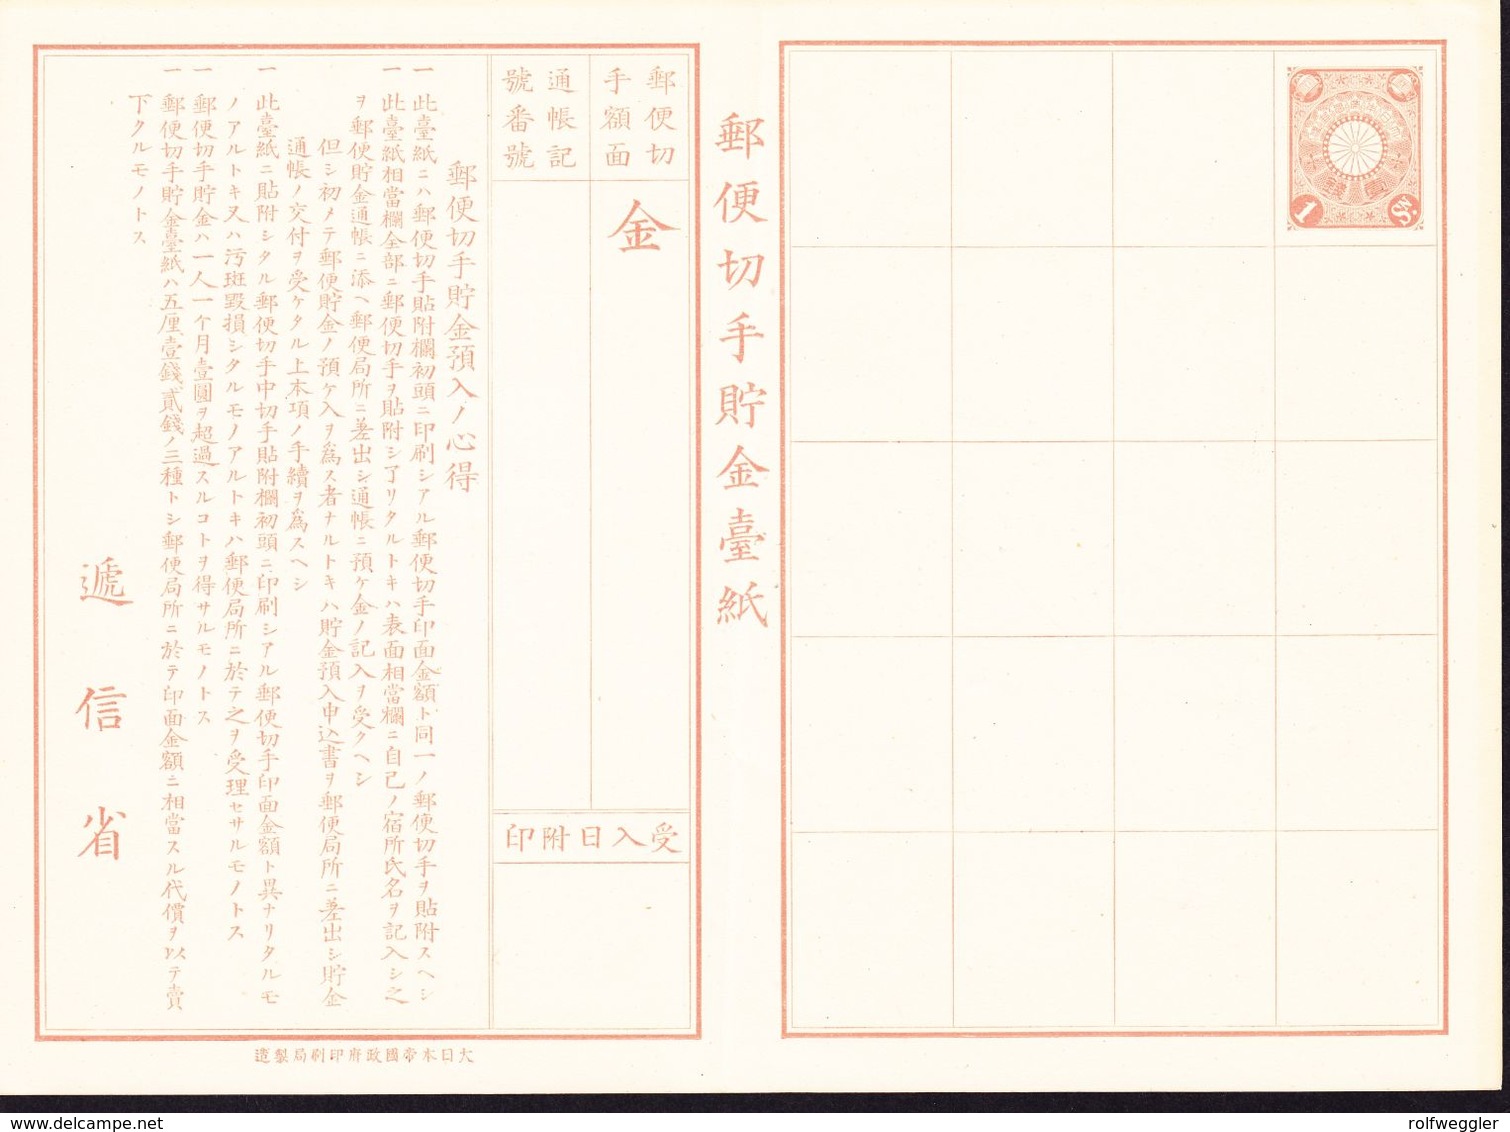 郵便切手貯金臺紙
1
S.
郵便切手額面
金
通帳記號番號
受入日附印
郵便切手貯金預入ノ心得
一 此臺紙ニハ郵便切手貼附欄初頭ニ印刷シアル郵便切手印面金額ト同一ノ郵便切手ヲ貼附スヘシ
一 此臺紙相當欄全部ニ郵便切手ヲ貼附シ了リタルトキハ表面相當欄ニ自己ノ宿所氏名ヲ記入シ之
ヲ郵便貯金通帳ニ添ヘ郵便局所ニ差出シ通帳ニ預ケ金ノ記入ヲ受クヘシ
但シ初メテ郵便貯金ノ預ケ入ヲ爲ス者ナルトキハ貯金預入申込書ヲ郵便局所ニ差出シ貯金
通帳ノ交付ヲ受ケタル上本項ノ手續ヲ爲スヘシ
一 此臺紙ニ貼附シタル郵便切手中切手貼附欄初頭ニ印刷シアル郵便切手印面金額ト異ナリタルモ
ノアルトキ又ハ汚斑毀損シタルモノアルトキハ郵便局所ニ於テ之ヲ受理セサルモノトス
一 郵便切手貯金ハ一人一ケ月壹圓ヲ超過スルコトヲ得サルモノトス
一 郵便切手貯金臺紙ハ五厘、壹錢、貳錢ノ三種トシ郵便局所ニ於テ印面金額ニ相當スル代價ヲ以テ賣
下クルモノトス
遞信省
大日本帝國政府印刷局製造
www.delcampe.net
rolfweggler